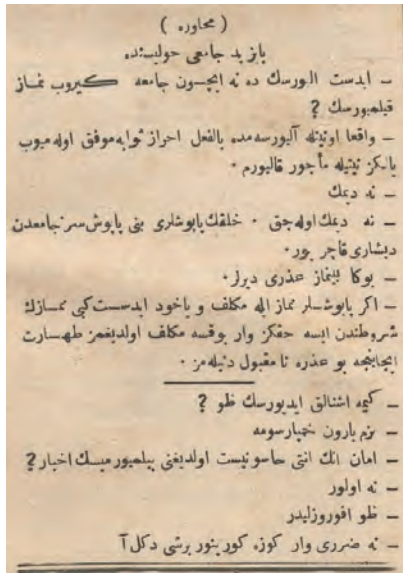 ( محاوره )
بايزيد جامعی حوليسنده
— ابدست الورسك ده نه ايچسون جامعه كيروب نماز
قيلميورسك ؟
— واقعا اونيتله آليورسه‌مده بالفعل احراز ثوابه موفق اوله‌ميوب
يالكز نيتيله مأجور قاليورم ٠
— نه ديمك
— نه ديمك اوله‌جق ٠ خلقك پابوشلری بنی پابوش‌سز جامعدن
ديشاری قاچريور ٠
— بوكا بينماز عذری ديرلر ٠
— اكر پابوشلر نماز ايله مكلف و ياخود ابدست كبی نمازك
شروطندن ايسه حقكز وار يوقسه مكلف اولديغمز طهارت
ايجابنجه بو عذره نا مقبول دنيله‌مز ٠
— كيمه اشنالق ايديورسك ظو ؟
— بزم بارون خمپارسومه
— امان انك انتی حاسونيست اولديغنی بيلميورميسك اخپار ؟
— نه اولور
— ظو افوروزليدر
— نه ضرری وار كوزه كورينور برشی دكل آ